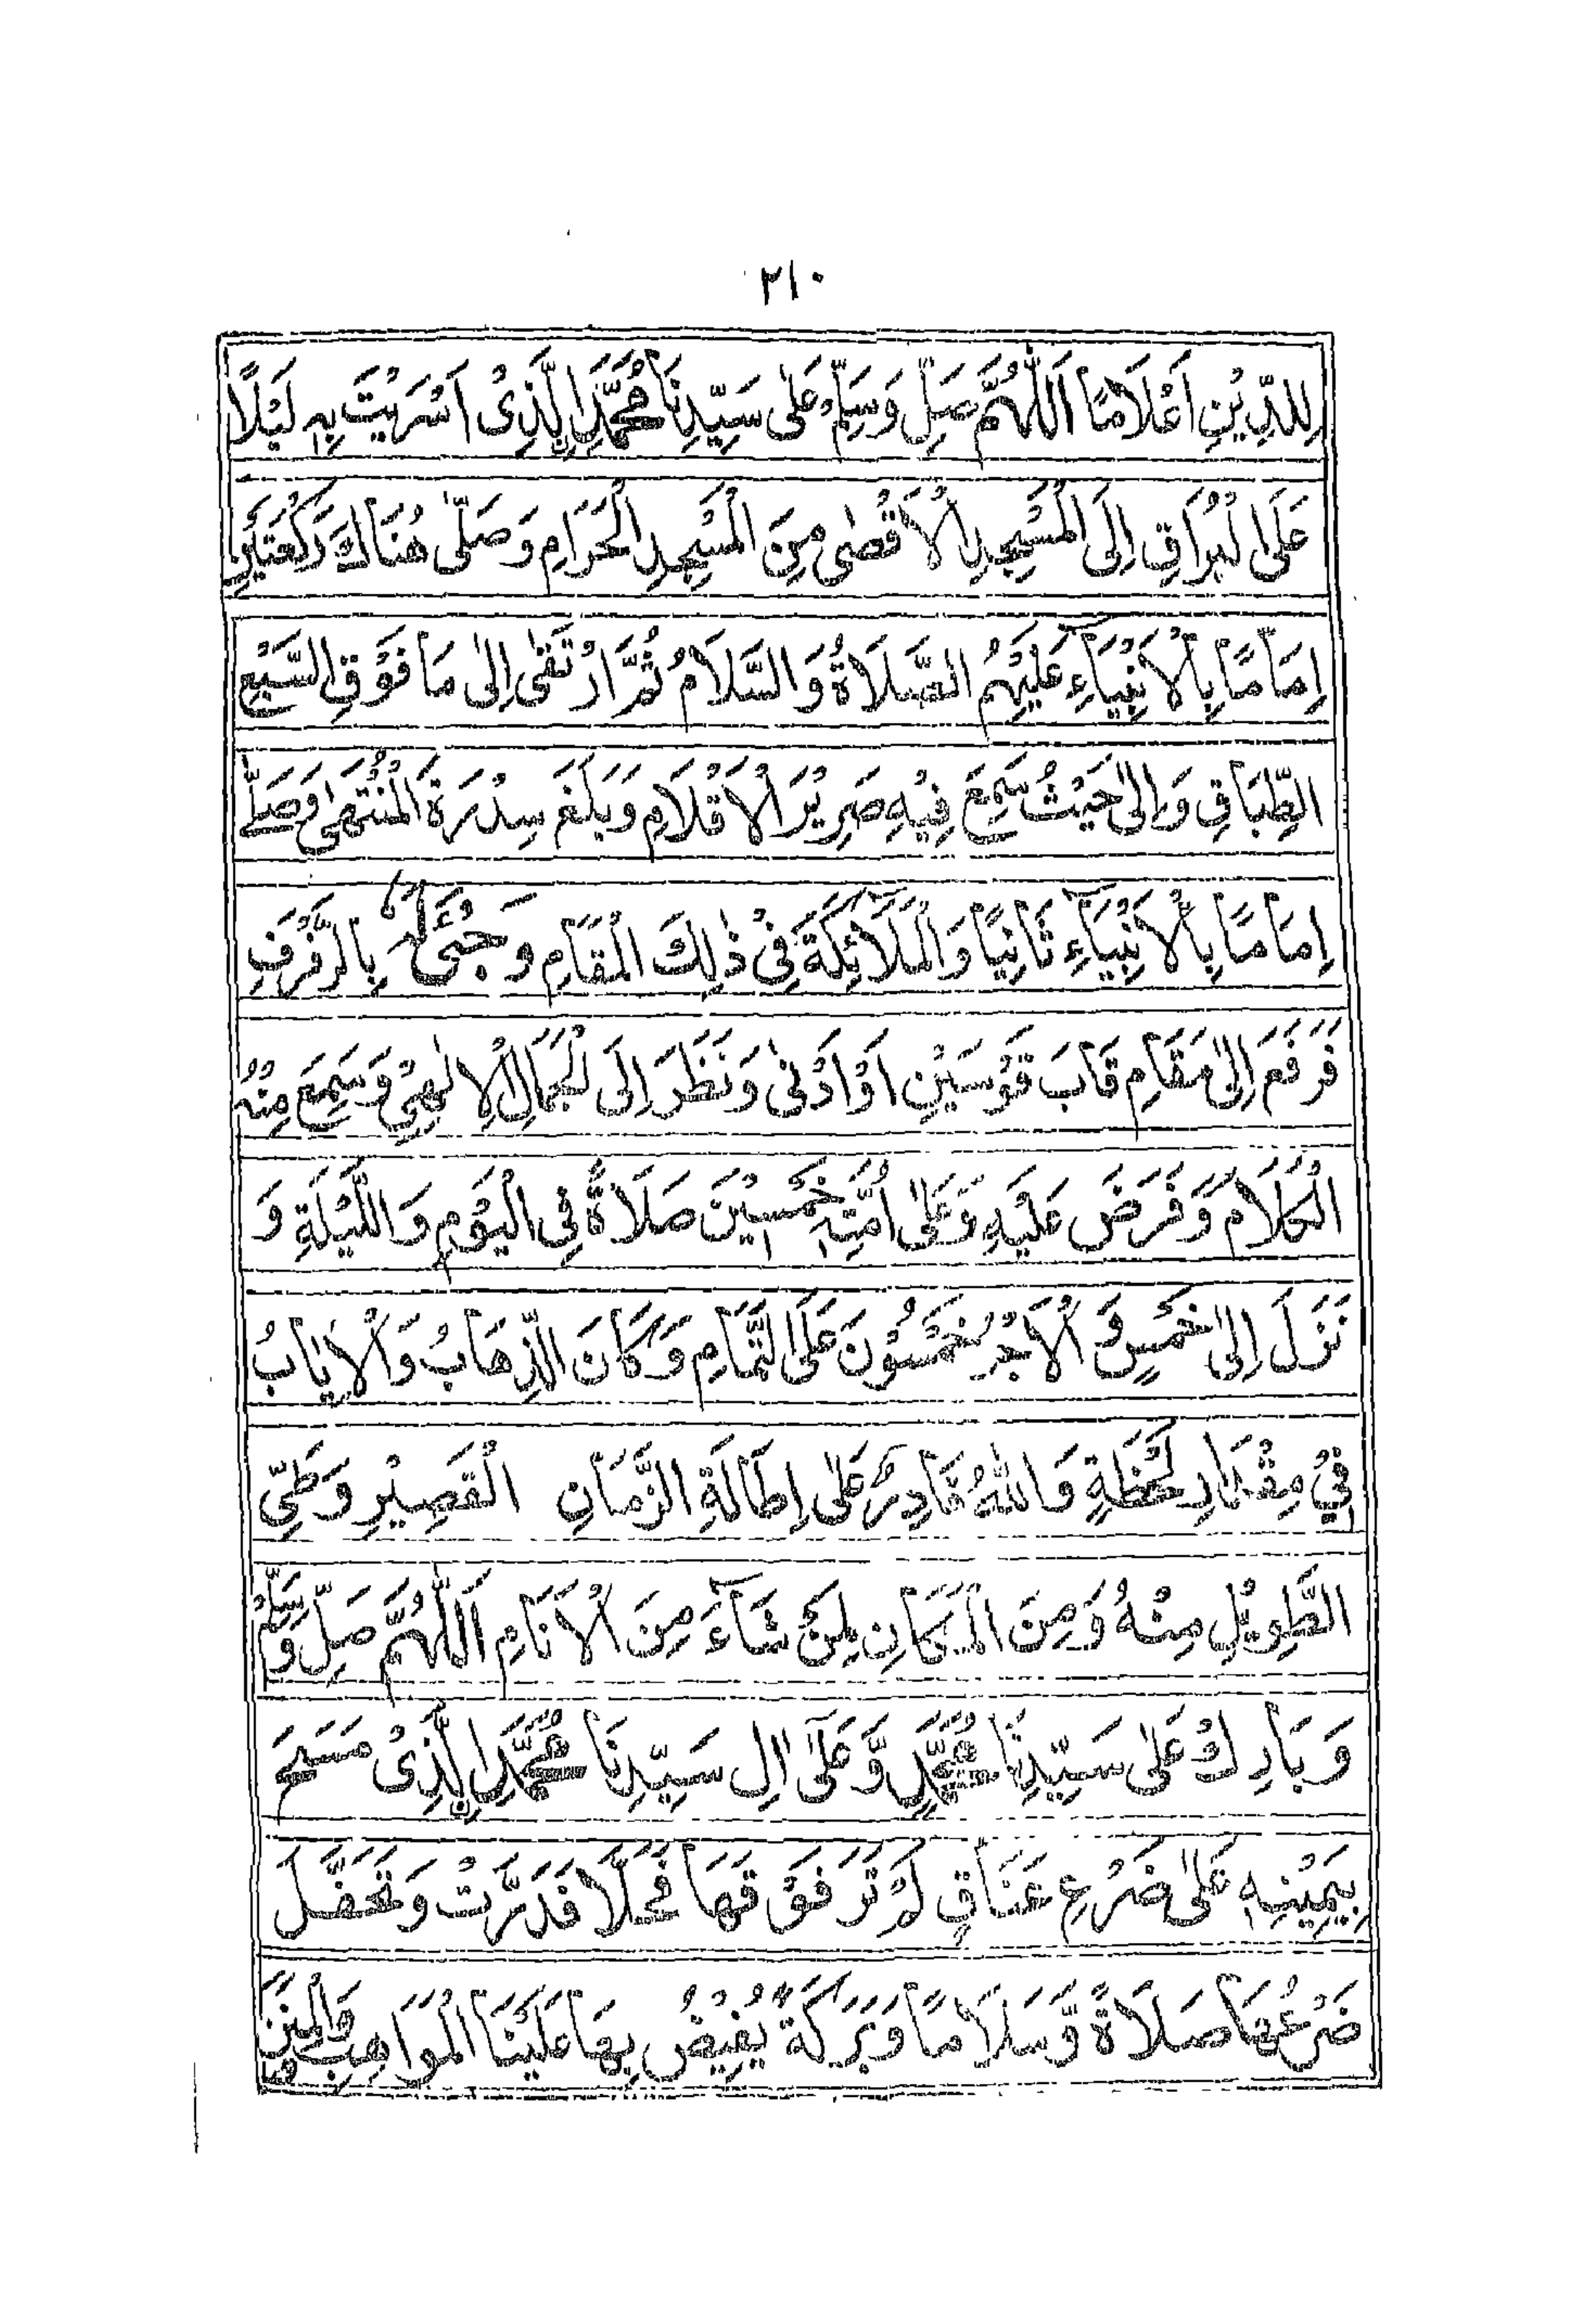 ٢١٠
لِلدِّيْنِ اَعْلَامًا اَللّٰهُمَّ صَلِّ وَسَلِّمْ عَلٰى سَيِّدِنَا مُحَمَّدَ اِلَّذِىْ اَسْرَيْتَ بِهٖ لَيْلًا
عَلَى الْبُرَاقِ اِلَى الْمَسْجِدِ الْاَقْصٰى مِنَ الْمَسْجِدِ الْحَرَامِ وَصَلّٰى هُنَاكَ رَكْعَتَيْنِ
اِمَامًا بِالْاَنْبِيَآءِ عَلَيْهِمُ الصَّلَاةُ وَالسَّلَامُ ثُمَّ ارْتَقٰى اِلٰى مَا فَوْقِ السَّبْعِ
الطِّبَاقِ وَاِلٰى حَيْثُ سَمِعَ فِيْهِ صَرِيْرَ الْاَقْلَامِ وَبَلَغَ سِدْرَةَ الْمُنْتَهٰى وَصَلّٰے
اِمَامًا بِالْاَنْبِيَآءِ ثَانِيًا وَالْمَلَآئِكَةَ فِىْ ذٰلِكَ الْمَقَامِ وَ بِالرَّفْرَفِ
فَرَفَعَ اِلٰى مَقَامِ قَابَ قَوْسَيْنِ اَوْ اَدْنٰى وَنَظَرَ اِلَى الْجَمَالِ الْاِلٰهِىْ وَسَمِعَ مِنْهُ
الْكَلَامَ وَفَرَضَ عَلَيْهِ وَعَلٰى اُمَّتِهٖ خَمْسِيْنَ صَلَاةً فِى الْيَوْمِ وَاللَّيْلَةِ وَ
نَزَلَ اِلٰى خَمْسٍ وَ الْاَجْرُ خَمْسُوْنَ عَلَى التَّمَامِ وَكَانَ الذِّهَابُ وَالْاِيَابُ
فِيْ مِقْدَارِ لَحْظَةٍ وَاللّٰهُ قَادِرٌ عَلٰى اِطَالَةِ الزَّمَانِ الْقَصِيْرِ وَطَىِّ
الطَّوِيْلِ مِنْهُ وَمِنَ الْمَكَانِ لِمَنْ شَآءَ مِنَ الْاَنَامِ اَللّٰهُمَّ صَلِّ وَسَلِّمْ
وَبَارِكْ عَلٰى سَيِّدِنَا مُحَمَّدٍ وَّعَلٰٓى اٰلِ سَيِّدِنَا مُحَمَّدَ اِلَّذِىْ مَسَحَ
بِيَمِيْنِهٖ عَلٰى ضَرْعِ عَنَاقٍ لَمْ تَرَ فَوْقَهَا فَحْلًا فَدَرَّتْ وَتَحَفَّلَ
ضَرْعُهَا صَلَاةً وَّسَلَامًا وَبَرَكَةً يُفِيْضُ بِهَا عَلَيْنَا الْمَوَاهِبَ وَالْمِنَنَ